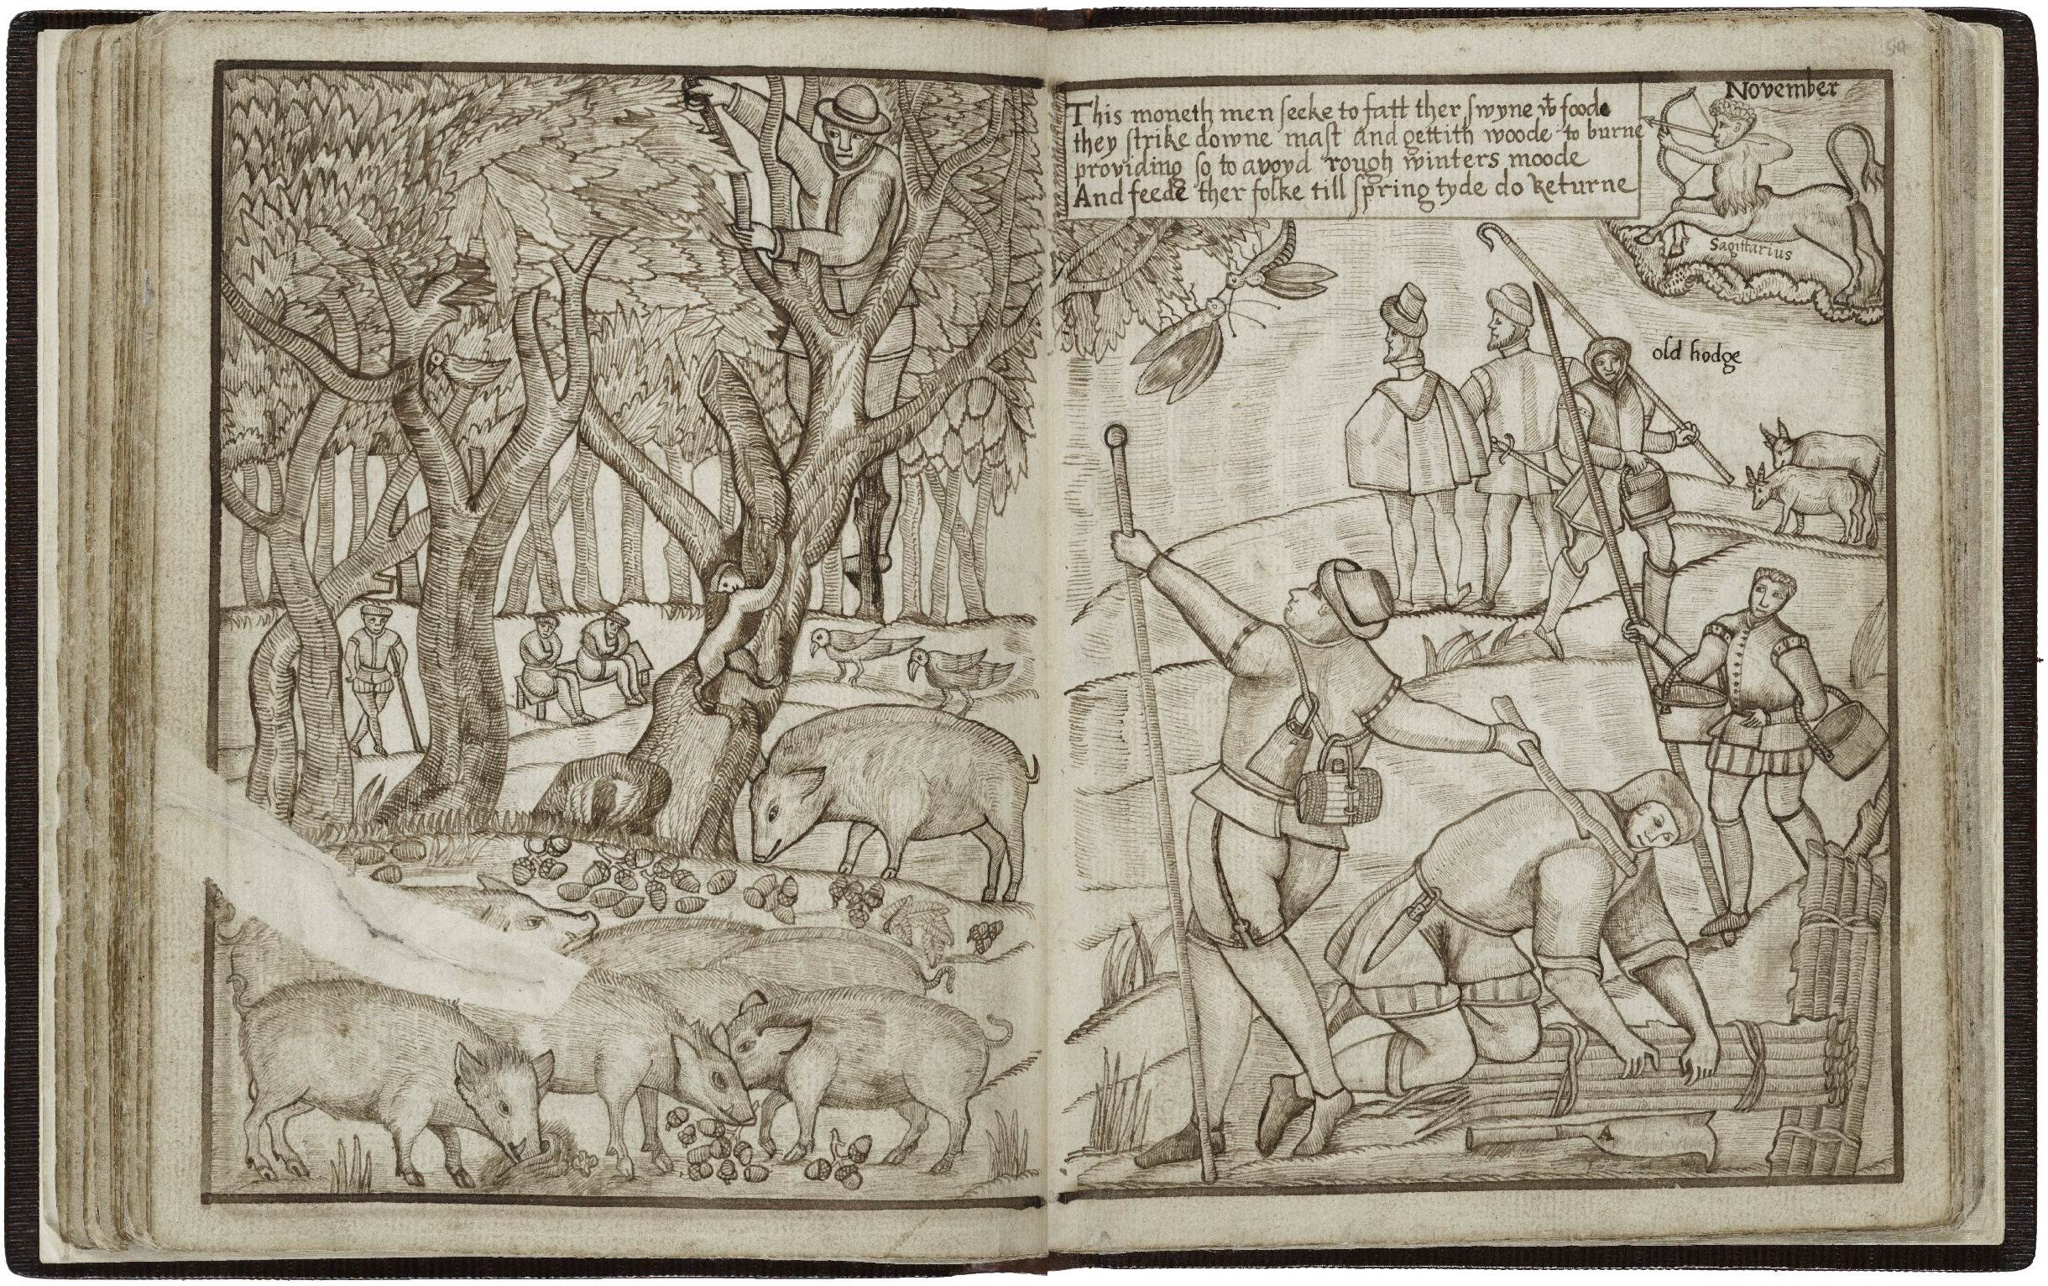 November
This moneth men seeke to fatt ther swyne wt foode
they strike downe mast and gettith woode to burne
providing so to avoyd rough winters moode
And feede ther folke till spring tyde do returne
Sagittarius
old hodge
A